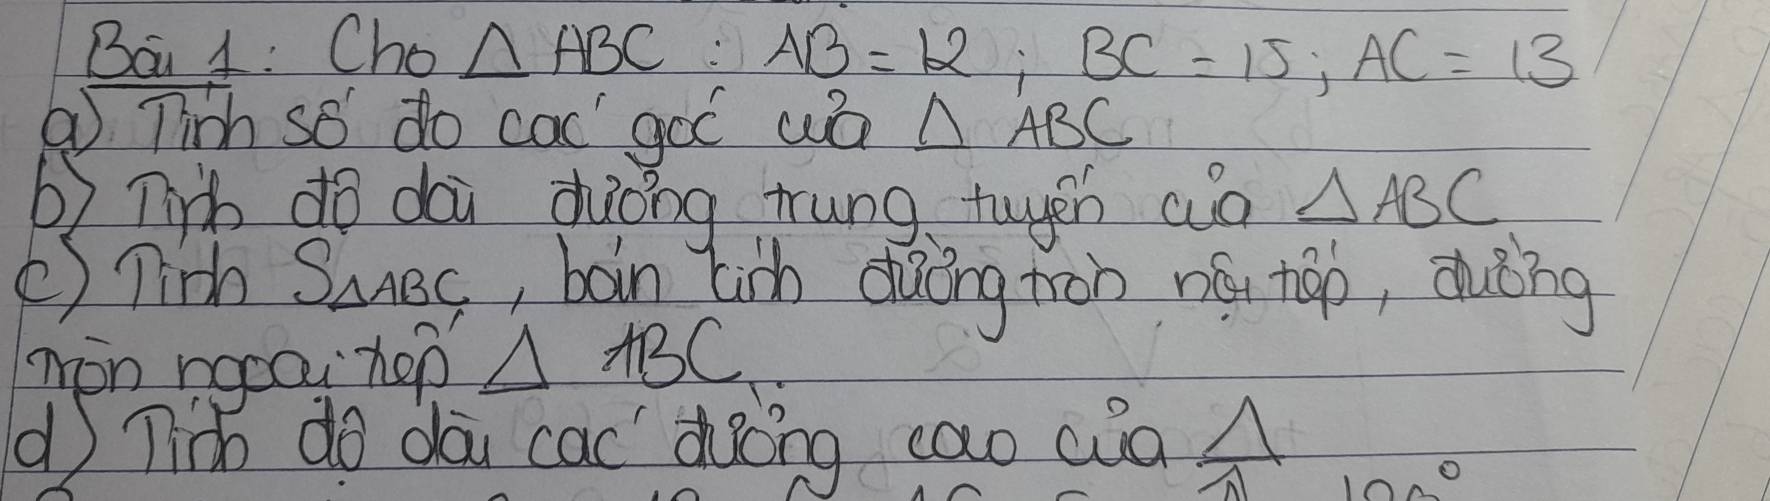 Bài 1: Cho Δ ABC : AB = 12 ; BC = 15 ; AC = 13
a) Tính số đo các góc của Δ ABC
b) Tính độ dài đường trung tuyến của Δ ABC
c) Tính SΔABC, bán kính đường tròn nội tiếp, đường
tròn ngoại tiếp Δ ABC
d) Tính độ dài các đường cao của Δ